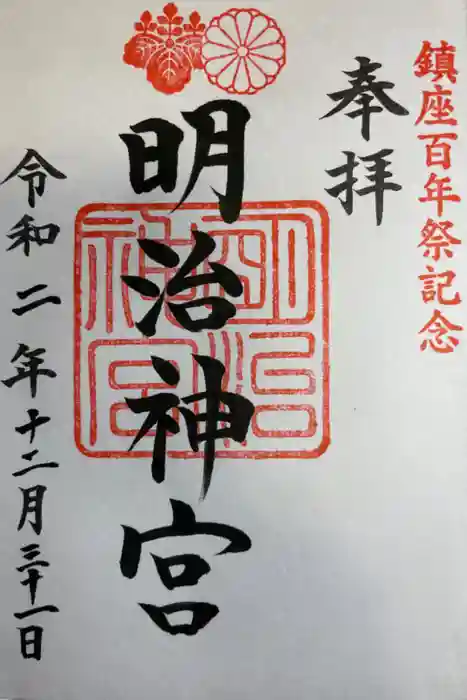 鎮座百年祭記念
奉拝
明治神宮
明治神宮
令和二年十二月三十一日